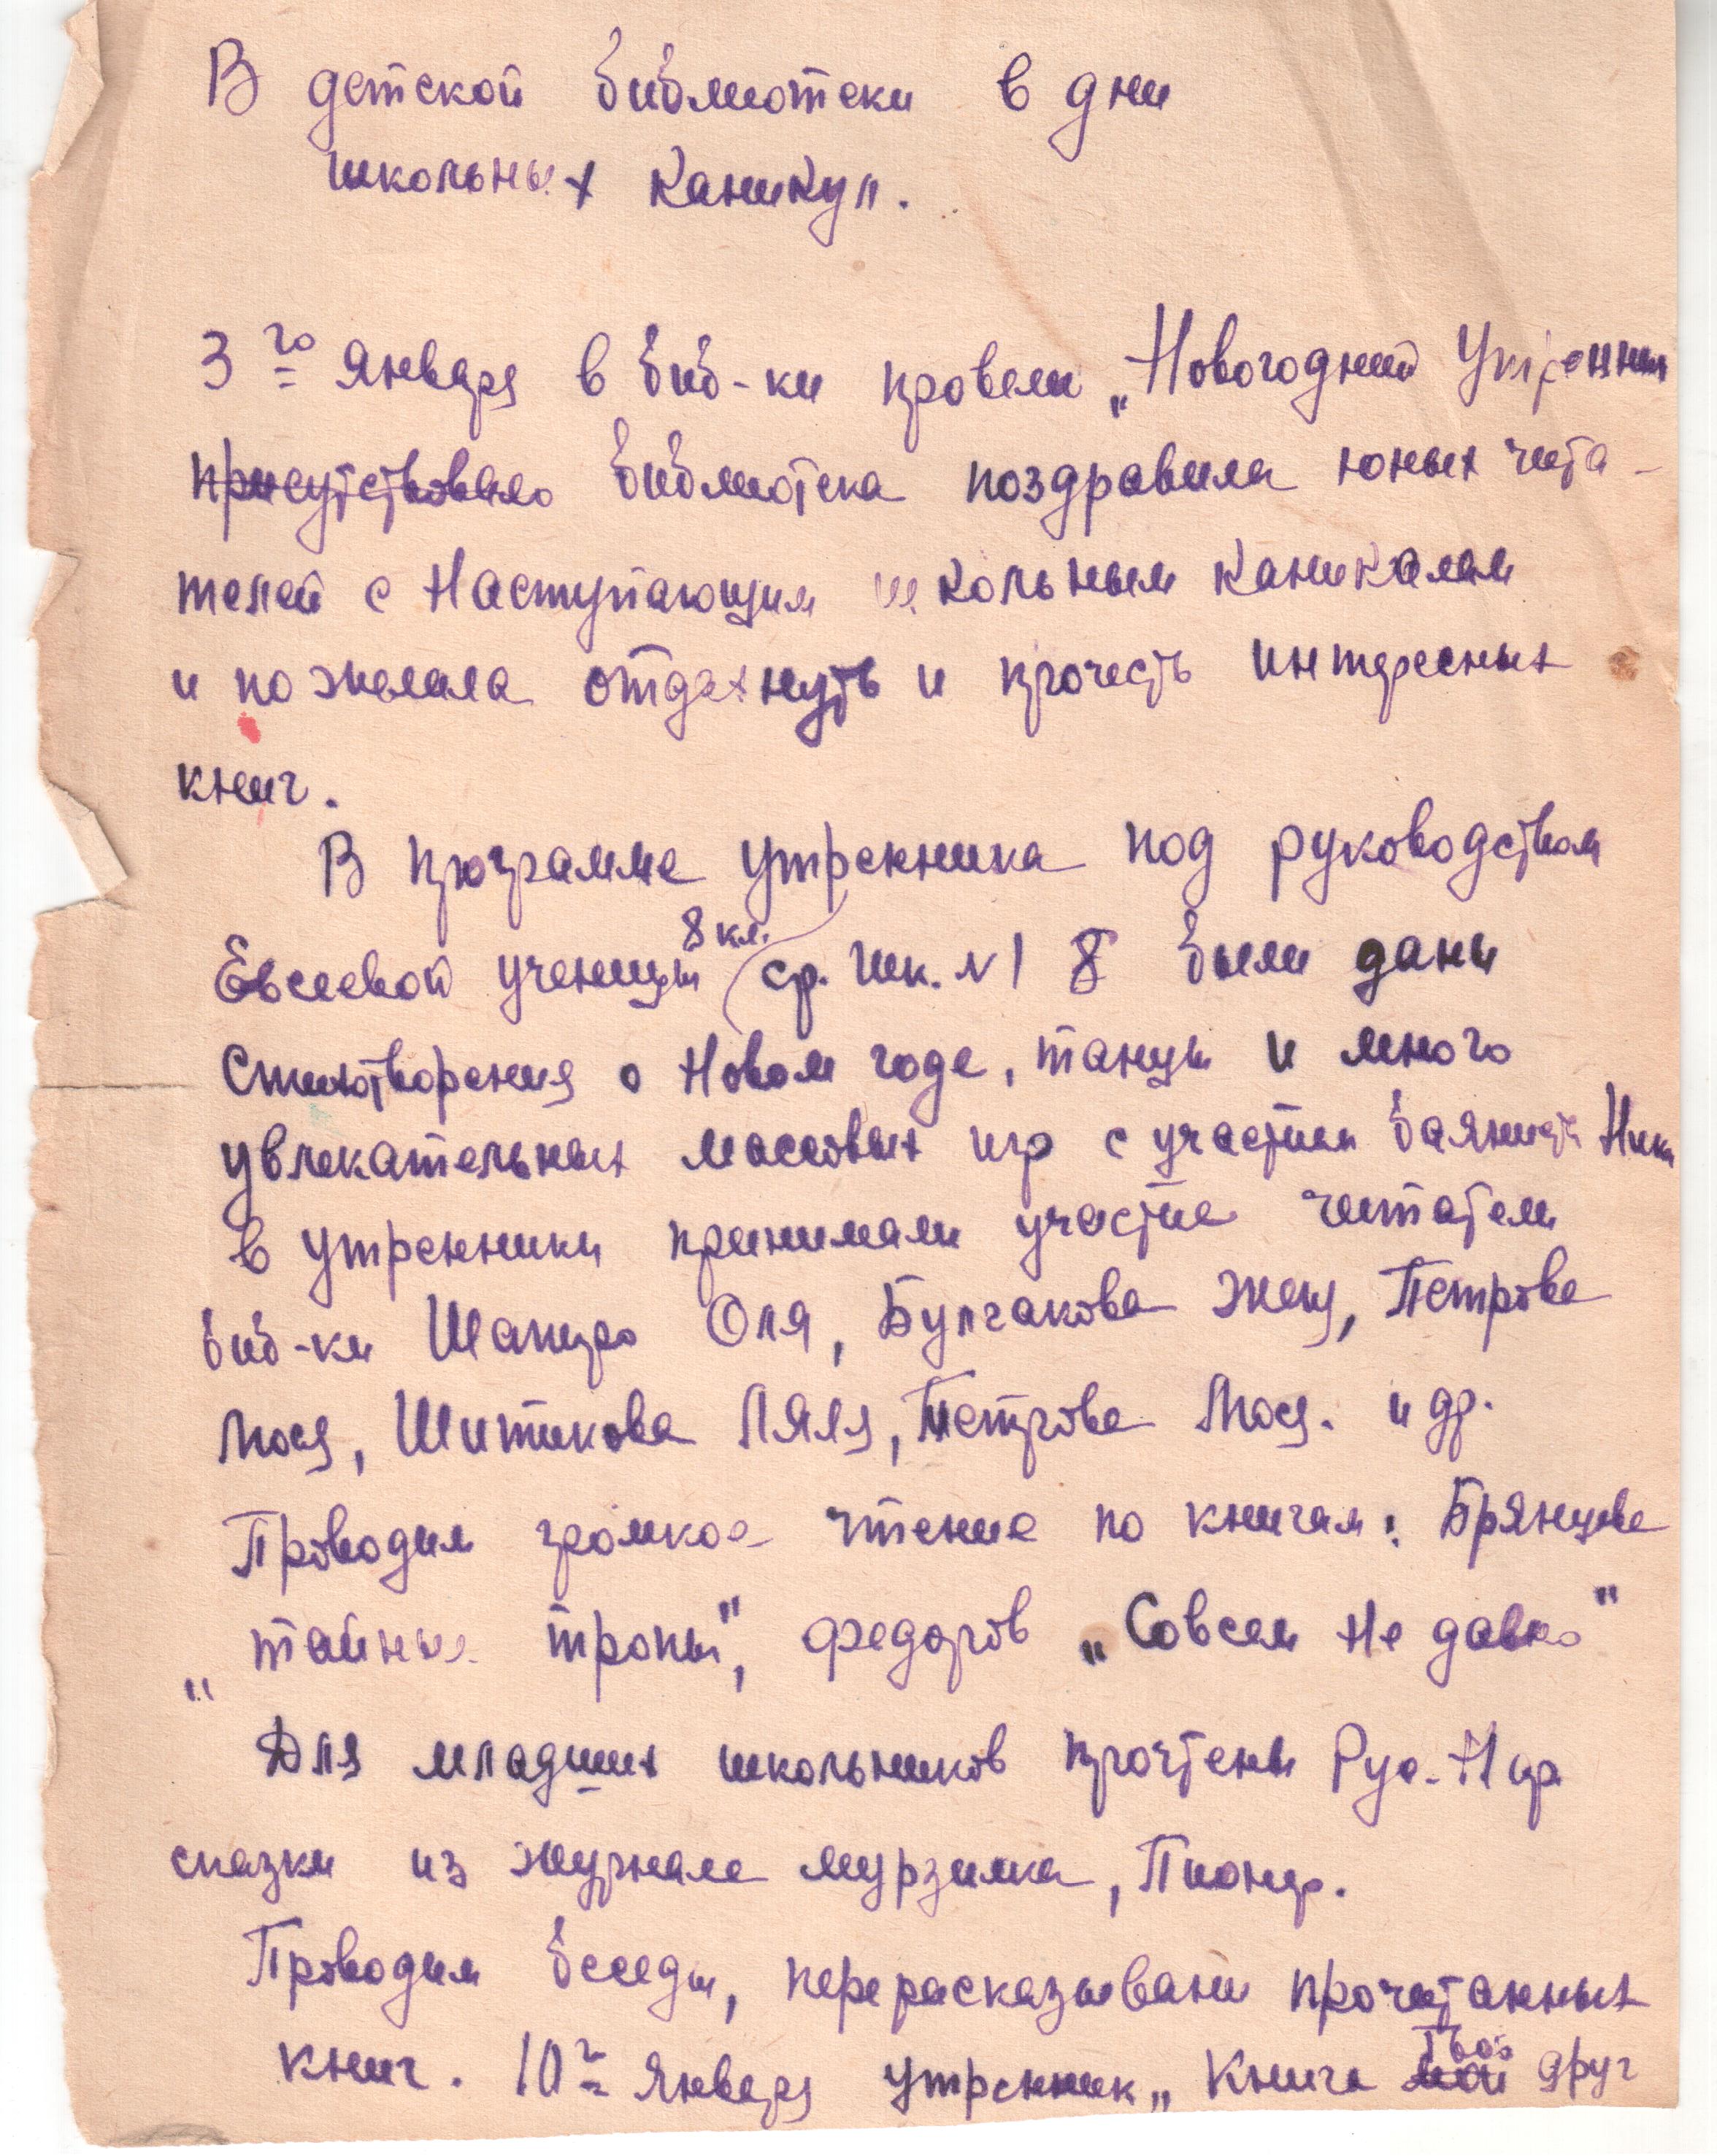 В детской библиотеки в дни
школьных каникул.
3го января в биб-ки провели „Новогодний Утренник
присутствовало библиотека поздравила юных чита-
телей с наступающим школьным каникалам
и пожелала отдахнуть и прочесть интересных
книг.
В программе утренника под руководством
Евсеевой ученицы 8 кл. ср. шк. №1 8 были даны
Стихотворения о Новом годе, танцы и много
увлекательных массовых игр с участием баяниста
в утренники принимали участие читатели
биб-ки Шапиро Оля, Булгакова Женя, Петрова
Люся, Шитикова Ляля, Петрова Люся. и др.
Проводим громкое чтение по книгам: Брянцева
„тайные тропы", Федоров „Совсем не давно"
Для младших школьников прочтены Рус. Нар.
сказки из журнала мурзилка, Пионер.
Проводим беседы, перерасказывани прочитанных
книг. 10го января утренник „Книга твой друг